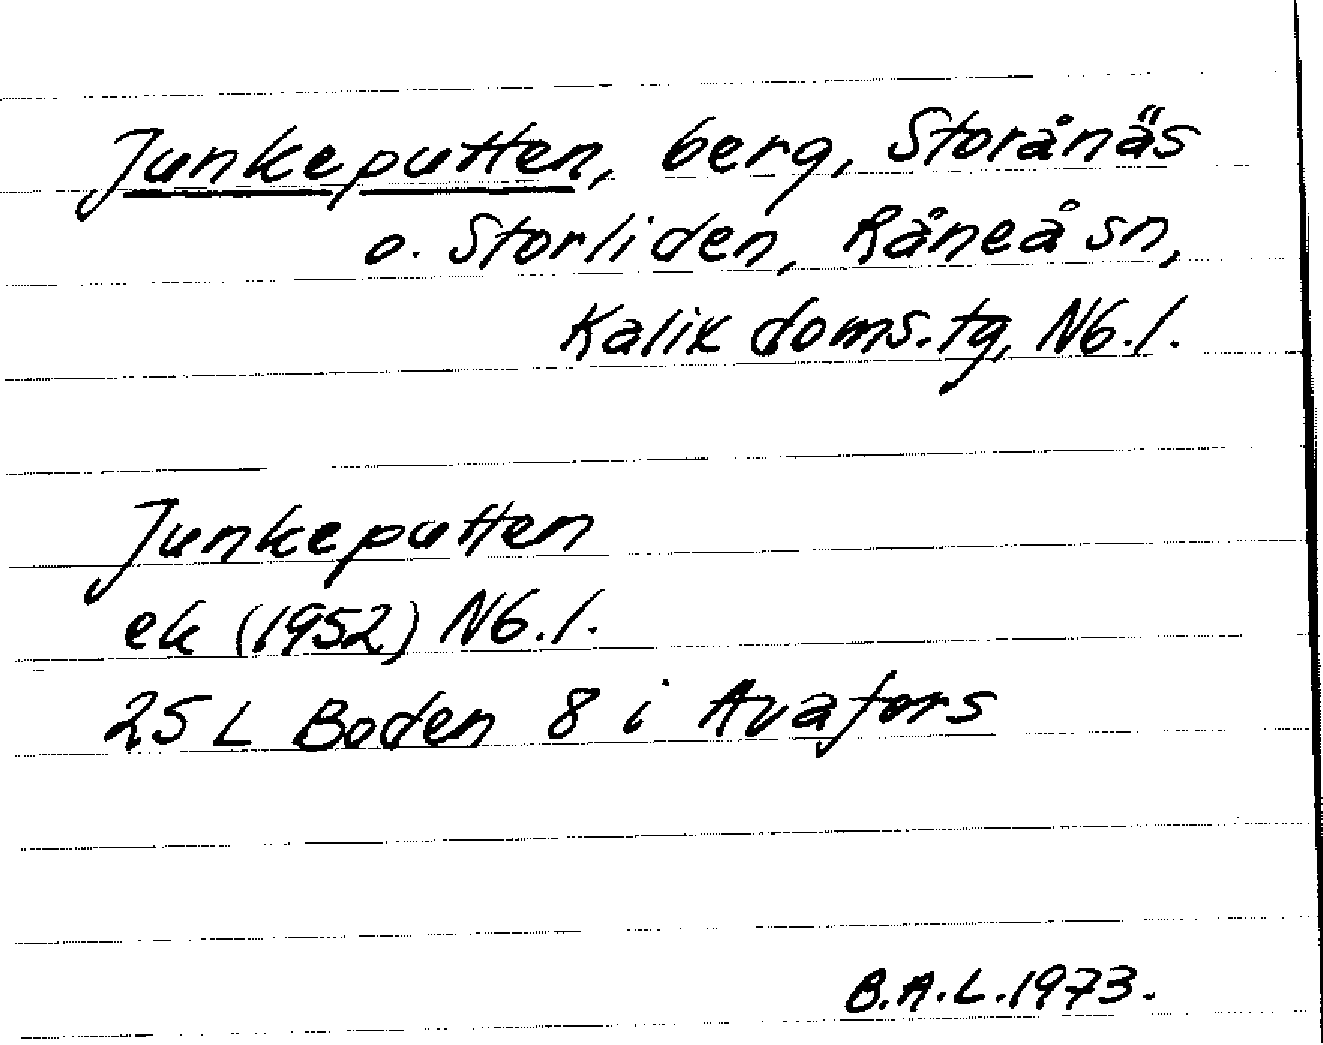 Junkeputten, berg, Storånäs
o. Storliden, Råneå sn,
Kalix doms.tg, Nb.l.
Junkeputten
ek (1952) Nb.l.
25 L Boden 8 i Avafors
B.A.L.1973.